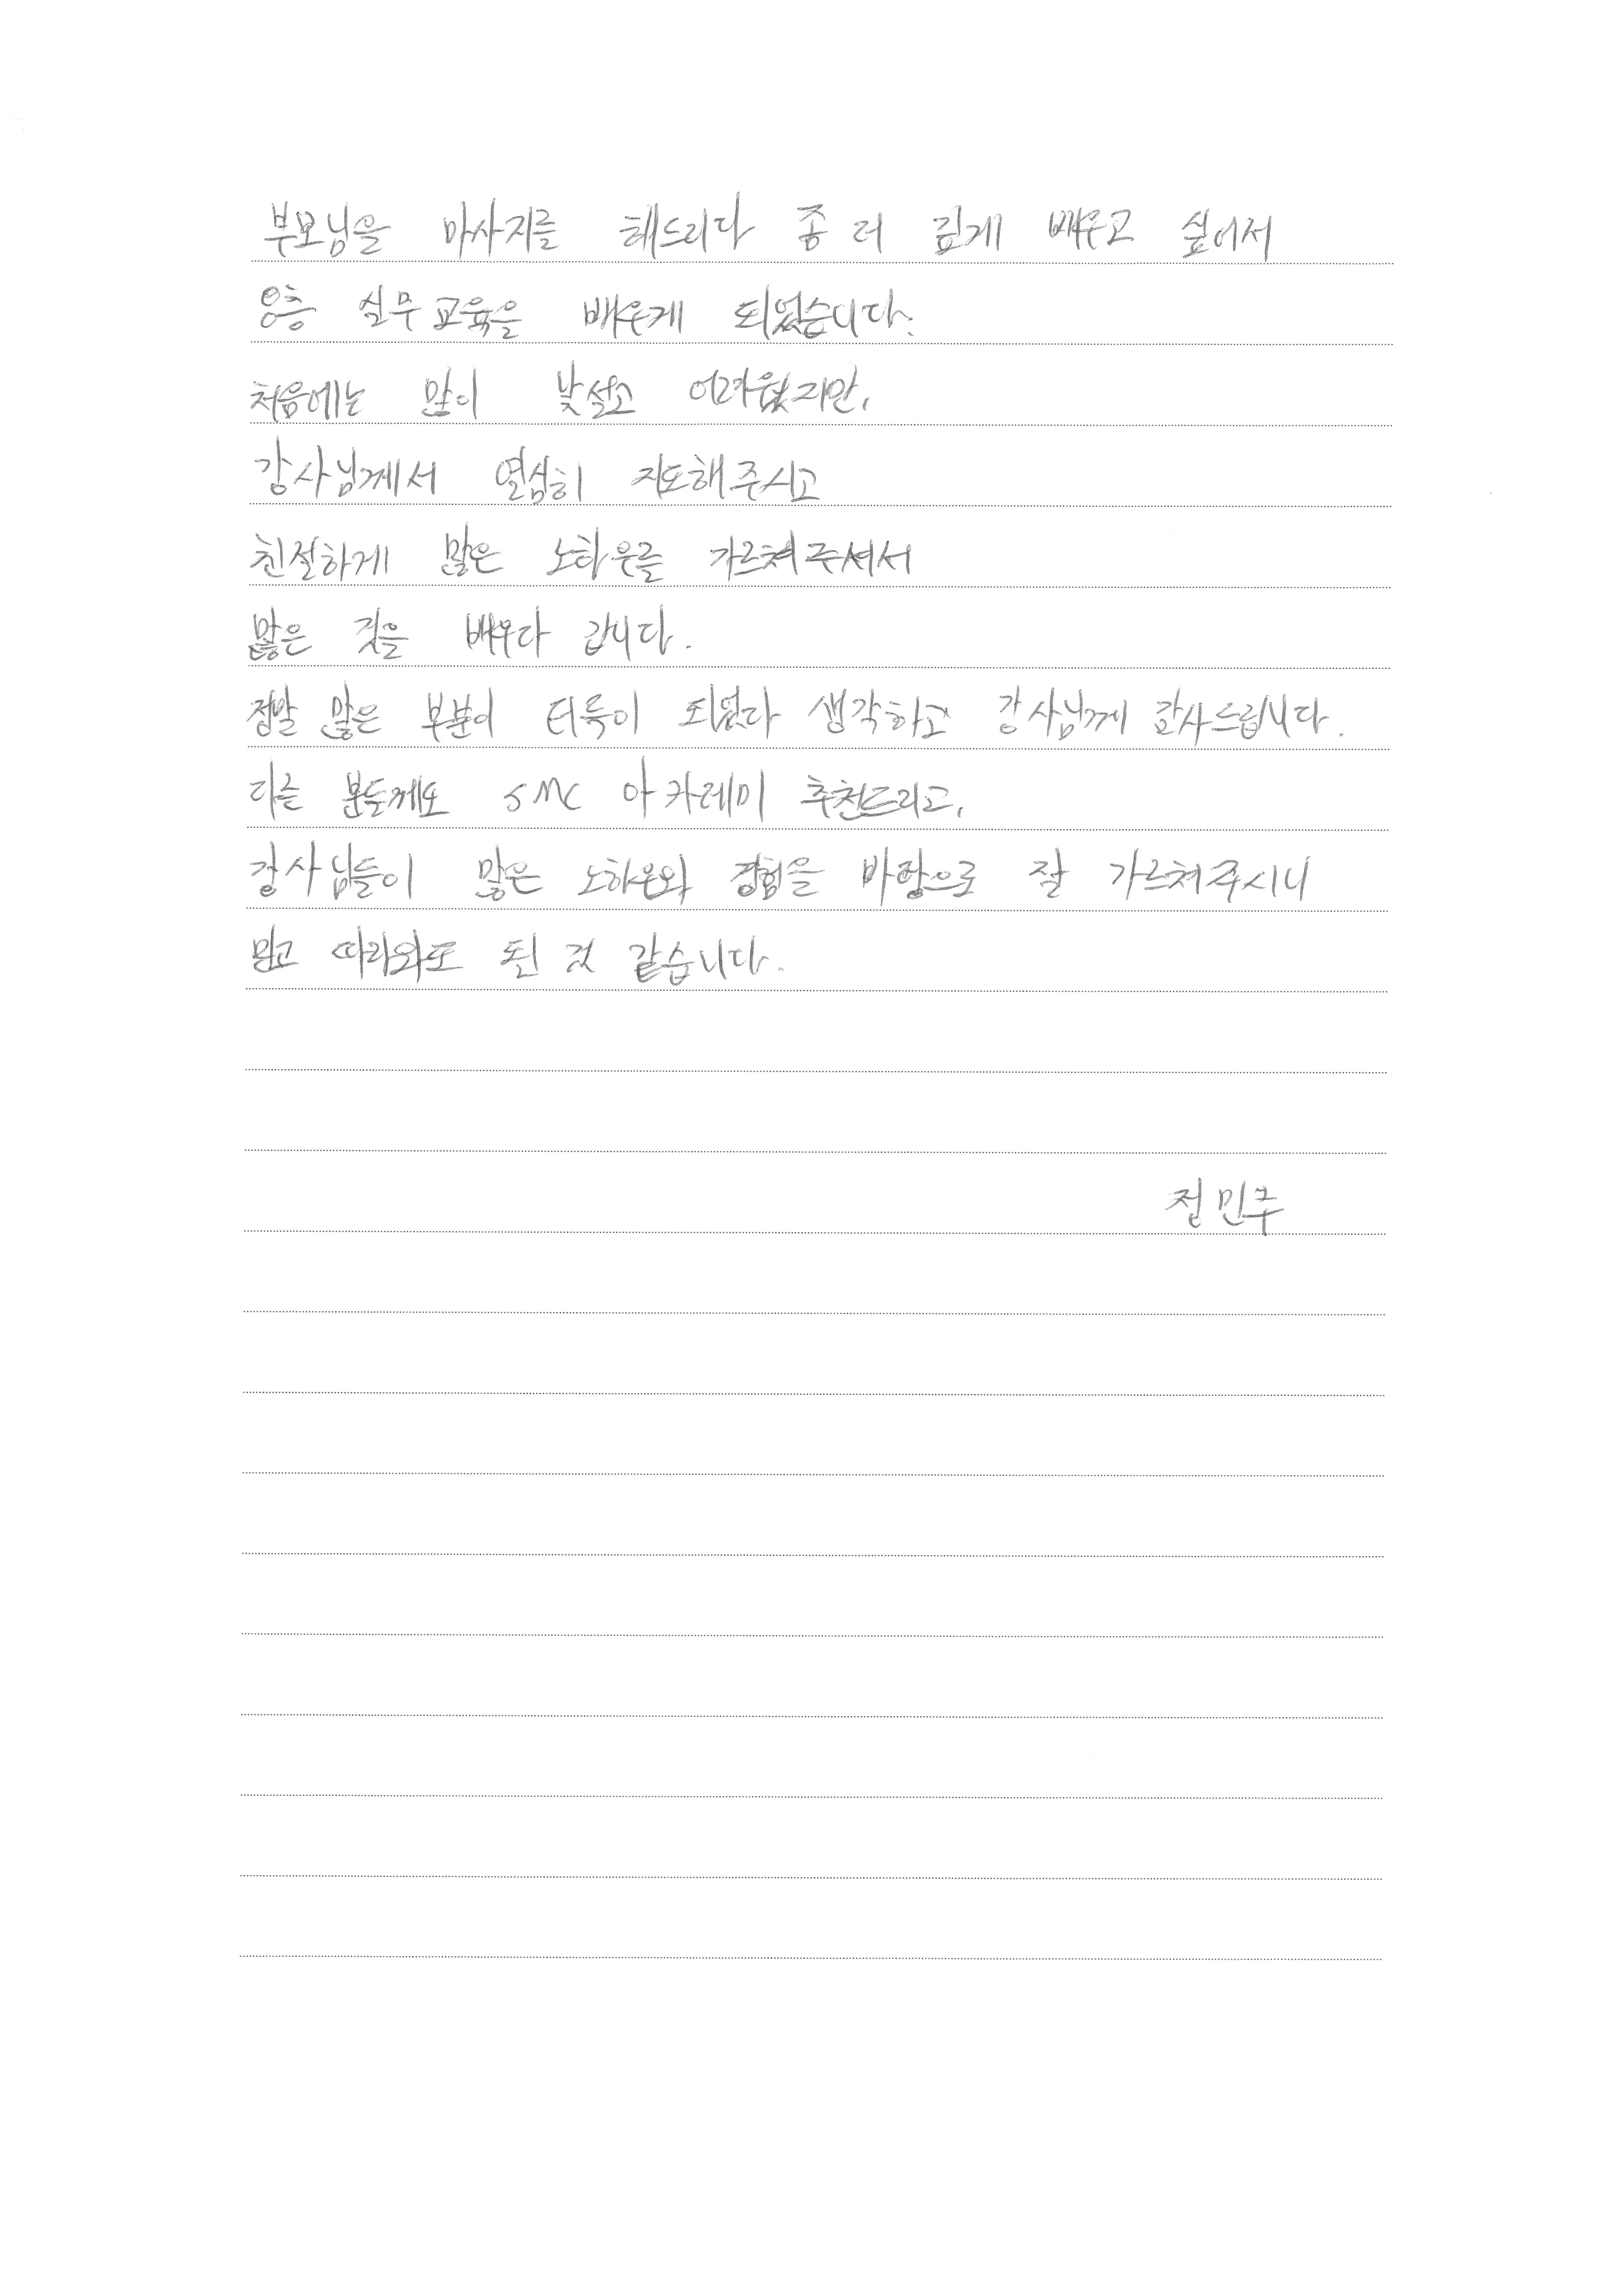 부모님을 마사지를 해드리다 좀 더 깊게 배우고 싶어서
실무교육을 배우게 되었습니다.
처음에는 많이 낯설고 어려웠지만,
강사님께서 열심히 지도해주시고
친절하게 많은 노하우를 가르쳐주셔서
많은 것을 배우다 갑니다.
정말 많은 부분이 터득이 되었다 생각하고 강사님께 감사드립니다.
다른 분들께도 SMC 아카데미 추천드리고,
강사님들이 많은 노하우와 경험을 바탕으로 잘 가르쳐주시니
믿고 따라와도 된 것 같습니다.